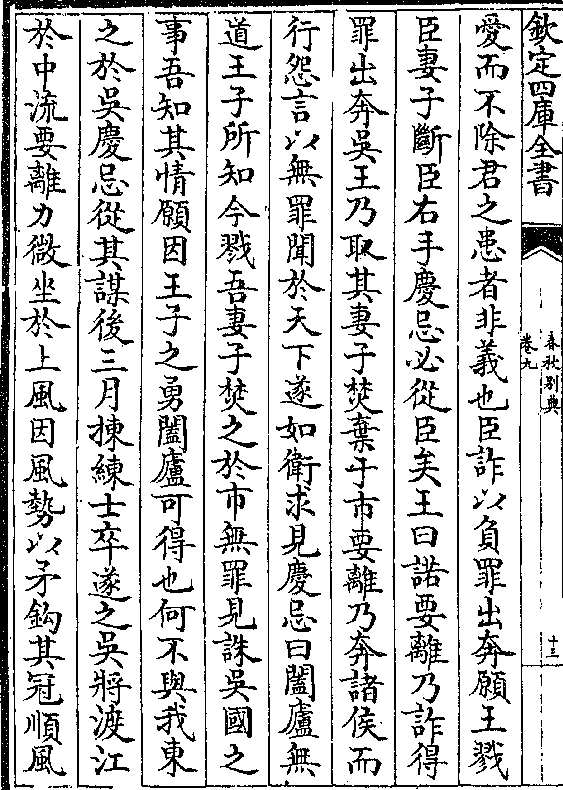 欽定四庫全書
春秋別典
卷九
十三
愛而不除君之患者非義也臣詐以負罪出奔願王戮
臣妻子斷臣右手慶忌必從臣矣王曰諾要離乃詐得
罪出奔吳王乃取其妻子焚棄于市要離乃奔諸侯而
行怨言以無罪聞於天下遂如衛求見慶忌曰闔廬無
道王子所知今戮吾妻子焚之於市無罪見誅吳國之
事吾知其情願因王子之勇闔廬可得也何不與我東
之於吳慶忌從其謀後三月揀練士卒遂之吳將渡江
於中流要離力微坐於上風因風勢以矛鈎其冠順風